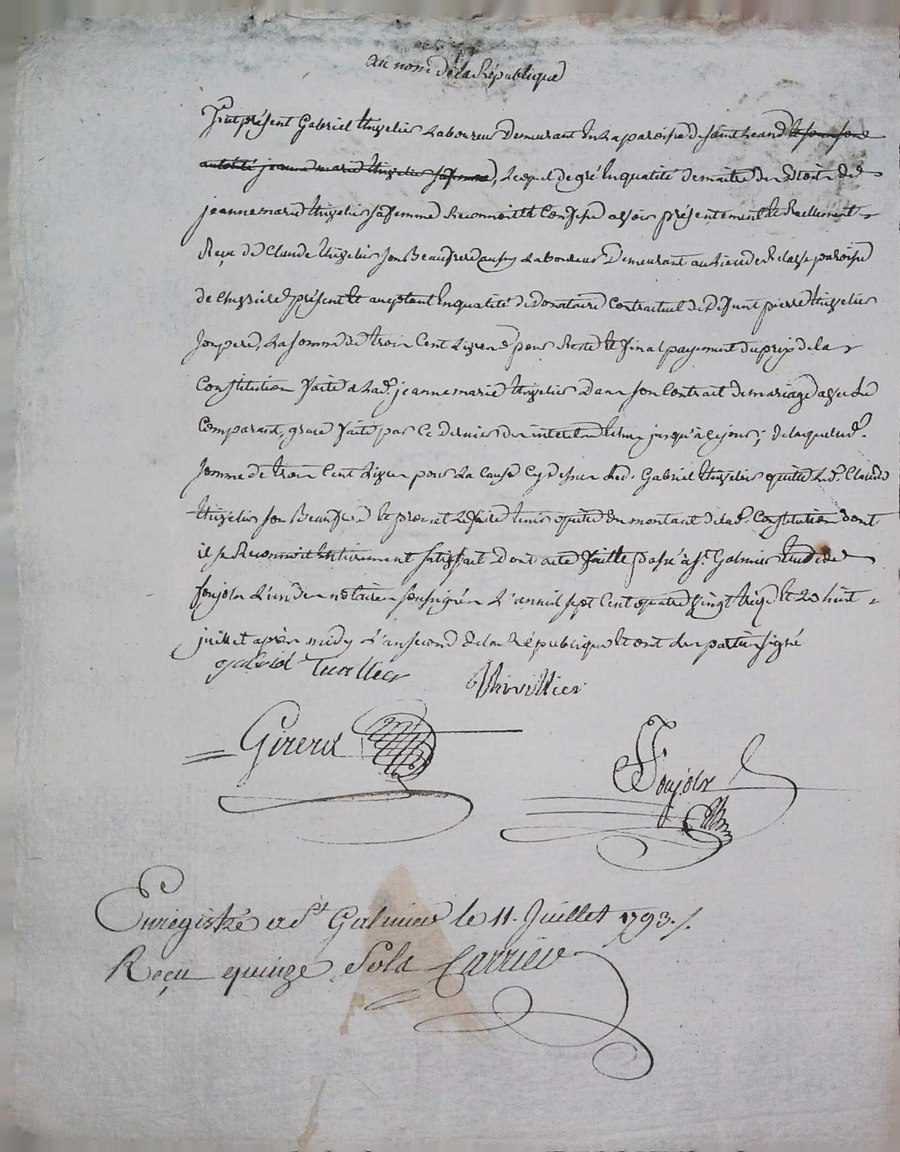 au nom de la République
Fut présent Gabriel laboureur demeurant en la paroisse de saint
autorité jeanne marie sa femme, lequel de gré en qualité de maitre des droits de
jeanne marie sa femme Reconnoit et Confesse avoir présentement et Reellement
Reçu de Claude son Beaufrere aussy laboureur demeurant au lieu de paroisse
de présent et acceptant en qualité de donataire Contractuel de Defunt pierre
son pere, la somme de trois Cent livres pour Reste et final payement du prix de la
Constitution faite a lad. jeanne marie dans son Contrat de mariage avec le
Comparant, grace faite par Ce dernier des interets jusqu'à ce jour; de laquelle d.
somme de trois Cent livres pour la Cause Cy dessus led. Gabriel quitte led. Claude
son Beaufrere et promet le faire tenir quitte du montant de lad. Constitution dont
il se Reconnoit Entierement satisfait Dont acte faitte passé à St. Galmier Etude de
l'un des notaires soussignés l'an mil sept Cent quatre vingt treize et le huit
juillet après midy l'an second de la République et ont les parties signé
gabriel
Girerd
Enregistré a St Galmier le 11. Juillet 1793./.
Reçu quinze Sols Carrier